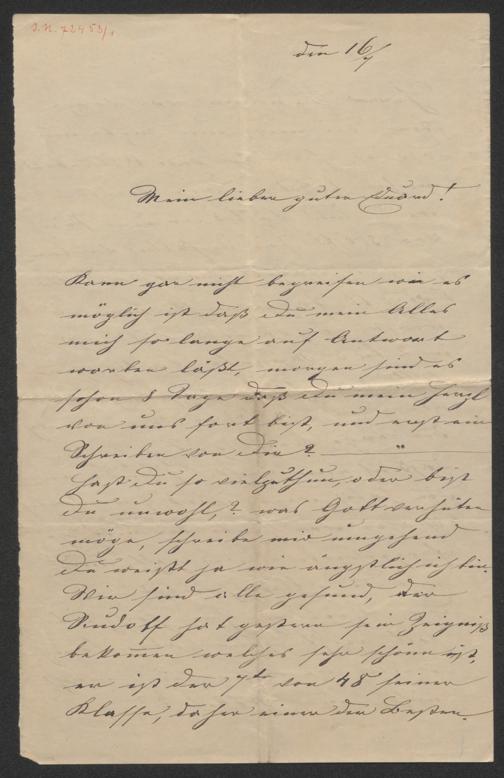 J.N. 72453/1
den 16/7
Mein lieber guter Eduard!
Kann gar nicht begreifen wie es
möglich ist daß du mein Alles
mich so lange auf Antwort
warten läßt, morgen sind es
schon 8 Tage daß du mein Herzl
von uns fort bist, und erst ein
Schreiben von dir? — " —
Hast du so viel zuthun, oder bist
du unwohl,? was Gott verhüten
möge, schreibe mir umgehend
du weißt ja wie ängstlich ich bin.
Wir sind alle gesund, der
Rudolf hat gestern sein Zeigniß
bekomen welches sehr schön ist,
er ist der 7te von 48 seiner
Klasse, daher einer der Besten.